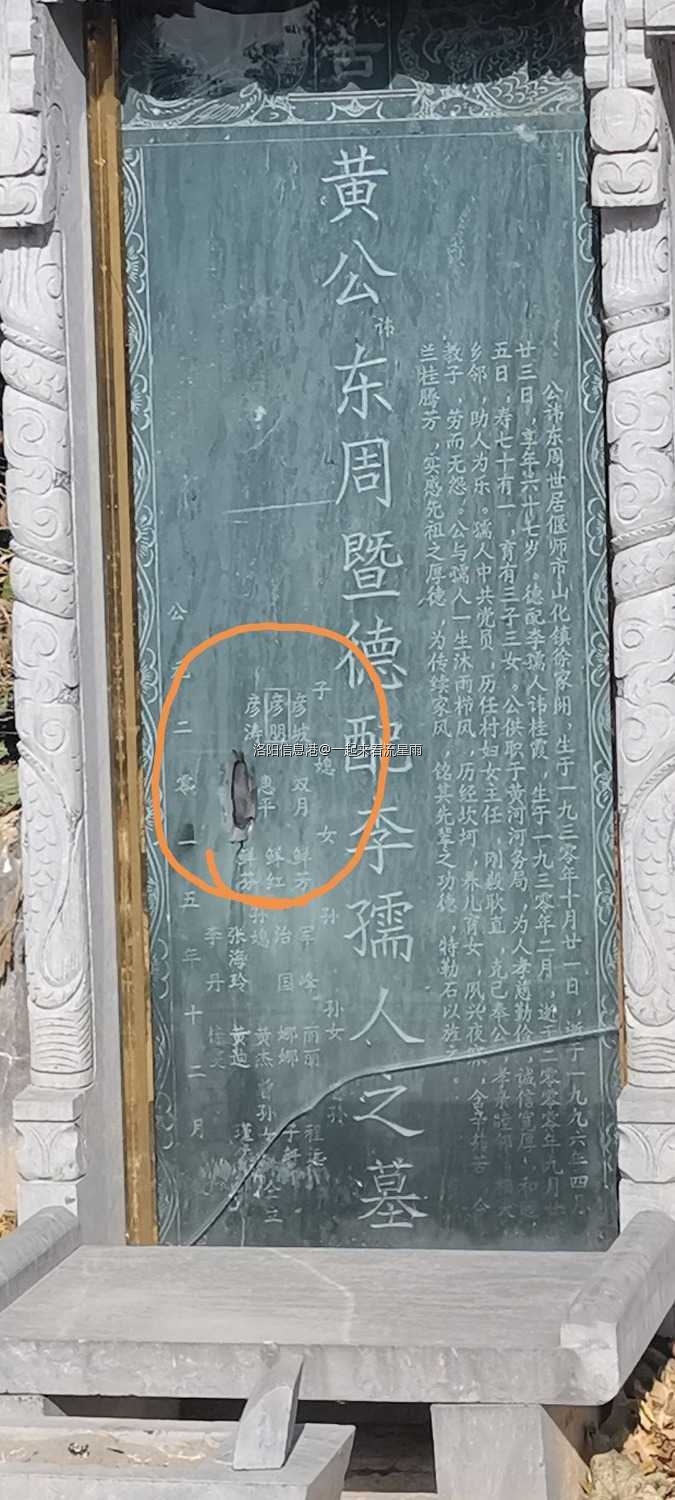 公讳东周世居偃师市山化镇徐家阏，生于一九三零年十月廿一日，逝于一九九六年四月
廿三日，享年六十七岁。德配李孺人讳桂霞，生于一九三零年二月，逝于二零零零年九月廿
五日，寿七十有一，育有三子三女。公供职于黄河河务局，为人孝慈勤俭，诚信宽厚，和
乡邻，助人为乐。孺人中共党员，历任村妇女主任，刚毅耿直，克己奉公，孝亲睦邻，
教子，劳而无怨。公与孺人一生沐雨栉风，历经坎坷，养儿育女，夙兴夜寐，含辛茹苦，今
兰桂腾芳，实感先祖之厚德，为传续家风，铭其先辈之功德，特勒石以旌之。
黄公讳东周暨德配李孺人之墓
子 媳 女 孙 孙女
彦坡 双月 鲜芳 军峰 丽丽
彦朋 惠平 鲜红 治国 娜娜
彦涛 鲜芬 孙媳 张海玲 李丹
黄杰 黄迪 曾孙女
公元二零一五年十二月
立
洛阳信息港@一起来看流星雨